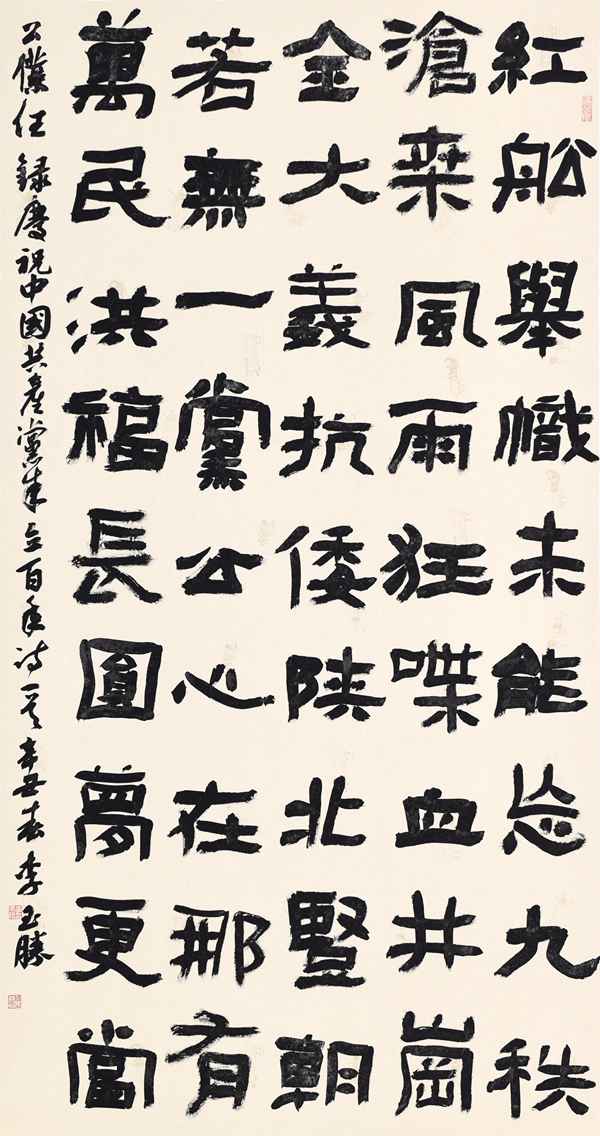 紅船舉幟未能忘九秩
滄桑風雨狂喋血井崗
金大義抗倭陝北豎朝
若無一黨公心在那有
萬民洪福長圓夢更當
公僕任 錄慶祝中國共產黨成立百年詩一首 辛丑春 李玉勝